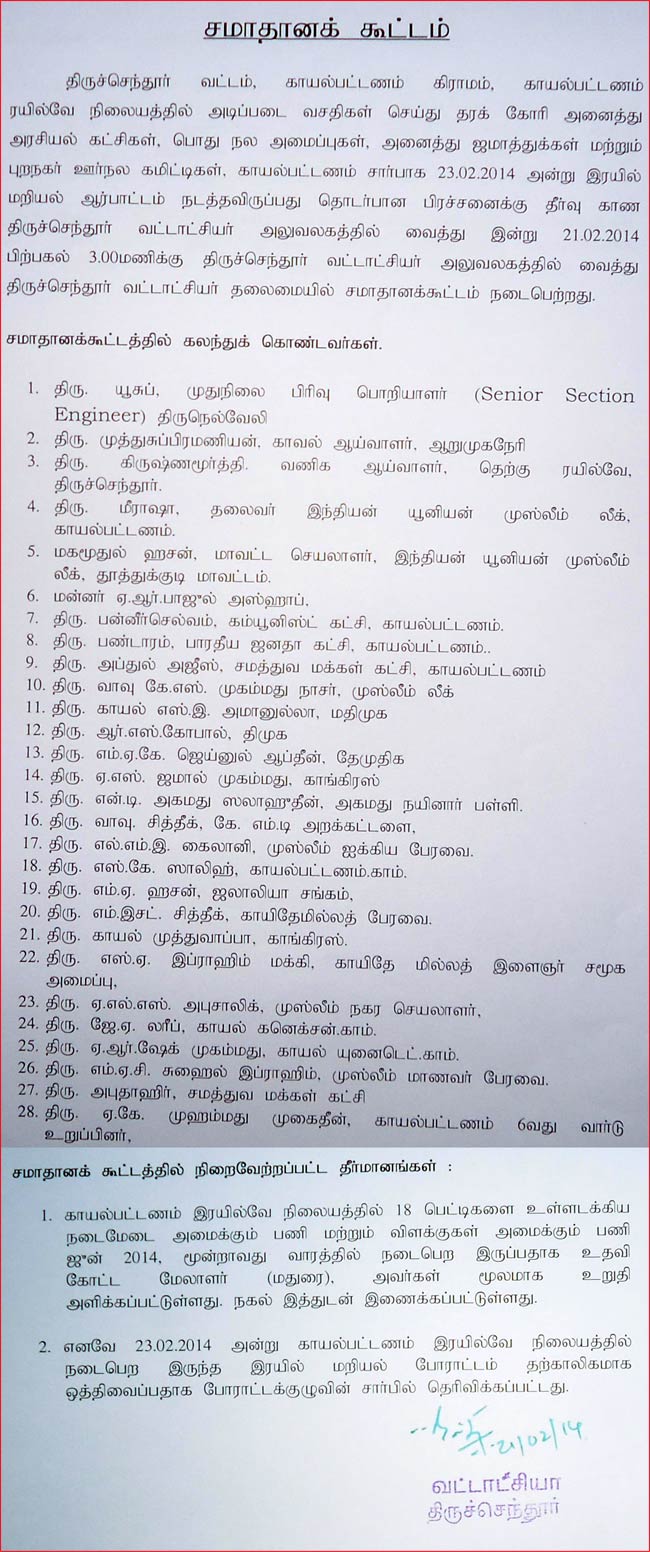 சமாதானக் கூட்டம்
திருச்செந்தூர் வட்டம், காயல்பட்டணம் கிராமம், காயல்பட்டணம்
ரயில்வே நிலையத்தில் அடிப்படை வசதிகள் செய்து தரக் கோரி அனைத்து
அரசியல் கட்சிகள், பொது நல அமைப்புகள், அனைத்து ஜமாத்துக்கள் மற்றும்
புறநகர் ஊர்நல கமிட்டிகள், காயல்பட்டணம் சார்பாக 23.02.2014 அன்று இரயில்
மறியல் ஆர்பாட்டம் நடத்தவிருப்பது தொடர்பான பிரச்சனைக்கு தீர்வு காண
திருச்செந்தூர் வட்டாட்சியர் அலுவலகத்தில் வைத்து இன்று 21.02.2014
பிற்பகல் 3.00மணிக்கு திருச்செந்தூர் வட்டாட்சியர் அலுவலகத்தில் வைத்து
திருச்செந்தூர் வட்டாட்சியர் தலைமையில் சமாதானக்கூட்டம் நடைபெற்றது.
சமாதானக்கூட்டத்தில் கலந்துக் கொண்டவர்கள்.
1. திரு. யூசுப், முதுநிலை பிரிவு பொறியாளர் (Senior Section
Engineer) திருநெல்வேலி
2. திரு. முத்துசுப்பிரமணியன், காவல் ஆய்வாளர், ஆறுமுகநேரி
3. திரு. கிருஷ்ணமூர்த்தி. வணிக ஆய்வாளர், தெற்கு ரயில்வே,
திருச்செந்தூர்.
4. திரு. மீராஷா, தலைவர் இந்தியன் யூனியன் முஸ்லீம் லீக்,
காயல்பட்டணம்.
5. மகமூதுல் ஹசன், மாவட்ட செயலாளர், இந்தியன் யூனியன் முஸ்லீம்
லீக், தூத்துக்குடி மாவட்டம்.
6. மன்னர் ஏ.ஆர்.பாஜுல் அஸ்ஹாப்,
7. திரு. பன்னீர்செல்வம், கம்யூனிஸ்ட் கட்சி, காயல்பட்டணம்.
8. திரு. பண்டாரம், பாரதீய ஜனதா கட்சி, காயல்பட்டணம்..
9. திரு. அப்துல் அஜீஸ், சமத்துவ மக்கள் கட்சி, காயல்பட்டணம்
10. திரு. வாவு கே.எஸ். முகம்மது நாசர், முஸ்லீம் லீக்
11. திரு. காயல் எஸ்.இ. அமானுல்லா, மதிமுக
12. திரு. ஆர்.எஸ்.கோபால், திமுக
13. திரு. எம்.ஏ.கே. ஜெய்னுல் ஆப்தீன், தேமுதிக
14. திரு. ஏ.எஸ். ஜமால் முகம்மது, காங்கிரஸ்
15. திரு. என்.டி. அகமது ஸலாஹுதீன், அகமது நயினார் பள்ளி.
16. திரு. வாவு. சித்தீக், கே. எம்.டி அறக்கட்டளை,
17. திரு. எல்.எம்.இ. கைலானி, முஸ்லீம் ஐக்கிய பேரவை.
18. திரு. எஸ்.கே. ஸாலிஹ், காயல்பட்டணம்.காம்.
19. திரு. எம்.ஏ. ஹசன், ஜலாலியா சங்கம்,
20. திரு. எம்.இசட். சித்தீக், காயிதேமில்லத் பேரவை.
21. திரு. காயல் முத்துவாப்பா, காங்கிரஸ்.
22. திரு. எஸ்.ஏ. இப்ராஹிம் மக்கி, காயிதே மில்லத் இளைஞர் சமூக
அமைப்பு,
23. திரு. ஏ.எல்.எஸ். அபுசாலிக், முஸ்லீம் நகர செயலாளர்,
24. திரு. ஜே.ஏ. லரீப், காயல் கனெக்சன்.காம்.
25. திரு. ஏ.ஆர்.ஷேக் முகம்மது, காயல் யுனைடெட்.காம்.
26. திரு. எம்.ஏ.சி. சுஹைல் இப்ராஹிம், முஸ்லீம் மாணவர் பேரவை.
27. திரு. அபுதாஹிர், சமத்துவ மக்கள் கட்சி
28. திரு. ஏ.கே. முஹம்மது முகைதீன், காயல்பட்டணம் 6வது வார்டு
உறுப்பினர்,
சமாதானக் கூட்டத்தில் நிறைவேற்றப்பட்ட தீர்மானங்கள் :
1. காயல்பட்டணம் இரயில்வே நிலையத்தில் 18 பெட்டிகளை உள்ளடக்கிய
நடைமேடை அமைக்கும் பணி மற்றும் விளக்குகள் அமைக்கும் பணி
ஜுன் 2014, மூன்றாவது வாரத்தில் நடைபெற இருப்பதாக உதவி
கோட்ட மேலாளர் (மதுரை), அவர்கள் மூலமாக உறுதி
அளிக்கப்பட்டுள்ளது. நகல் இத்துடன் இணைக்கப்பட்டுள்ளது.
2. எனவே 23.02.2014 அன்று காயல்பட்டணம் இரயில்வே நிலையத்தில்
நடைபெற இருந்த இரயில் மறியல் போராட்டம் தற்காலிகமாக
ஒத்திவைப்பதாக போராட்டக்குழுவின் சார்பில் தெரிவிக்கப்பட்டது.
21/02/14
வட்டாட்சியர்
திருச்செந்தூர்